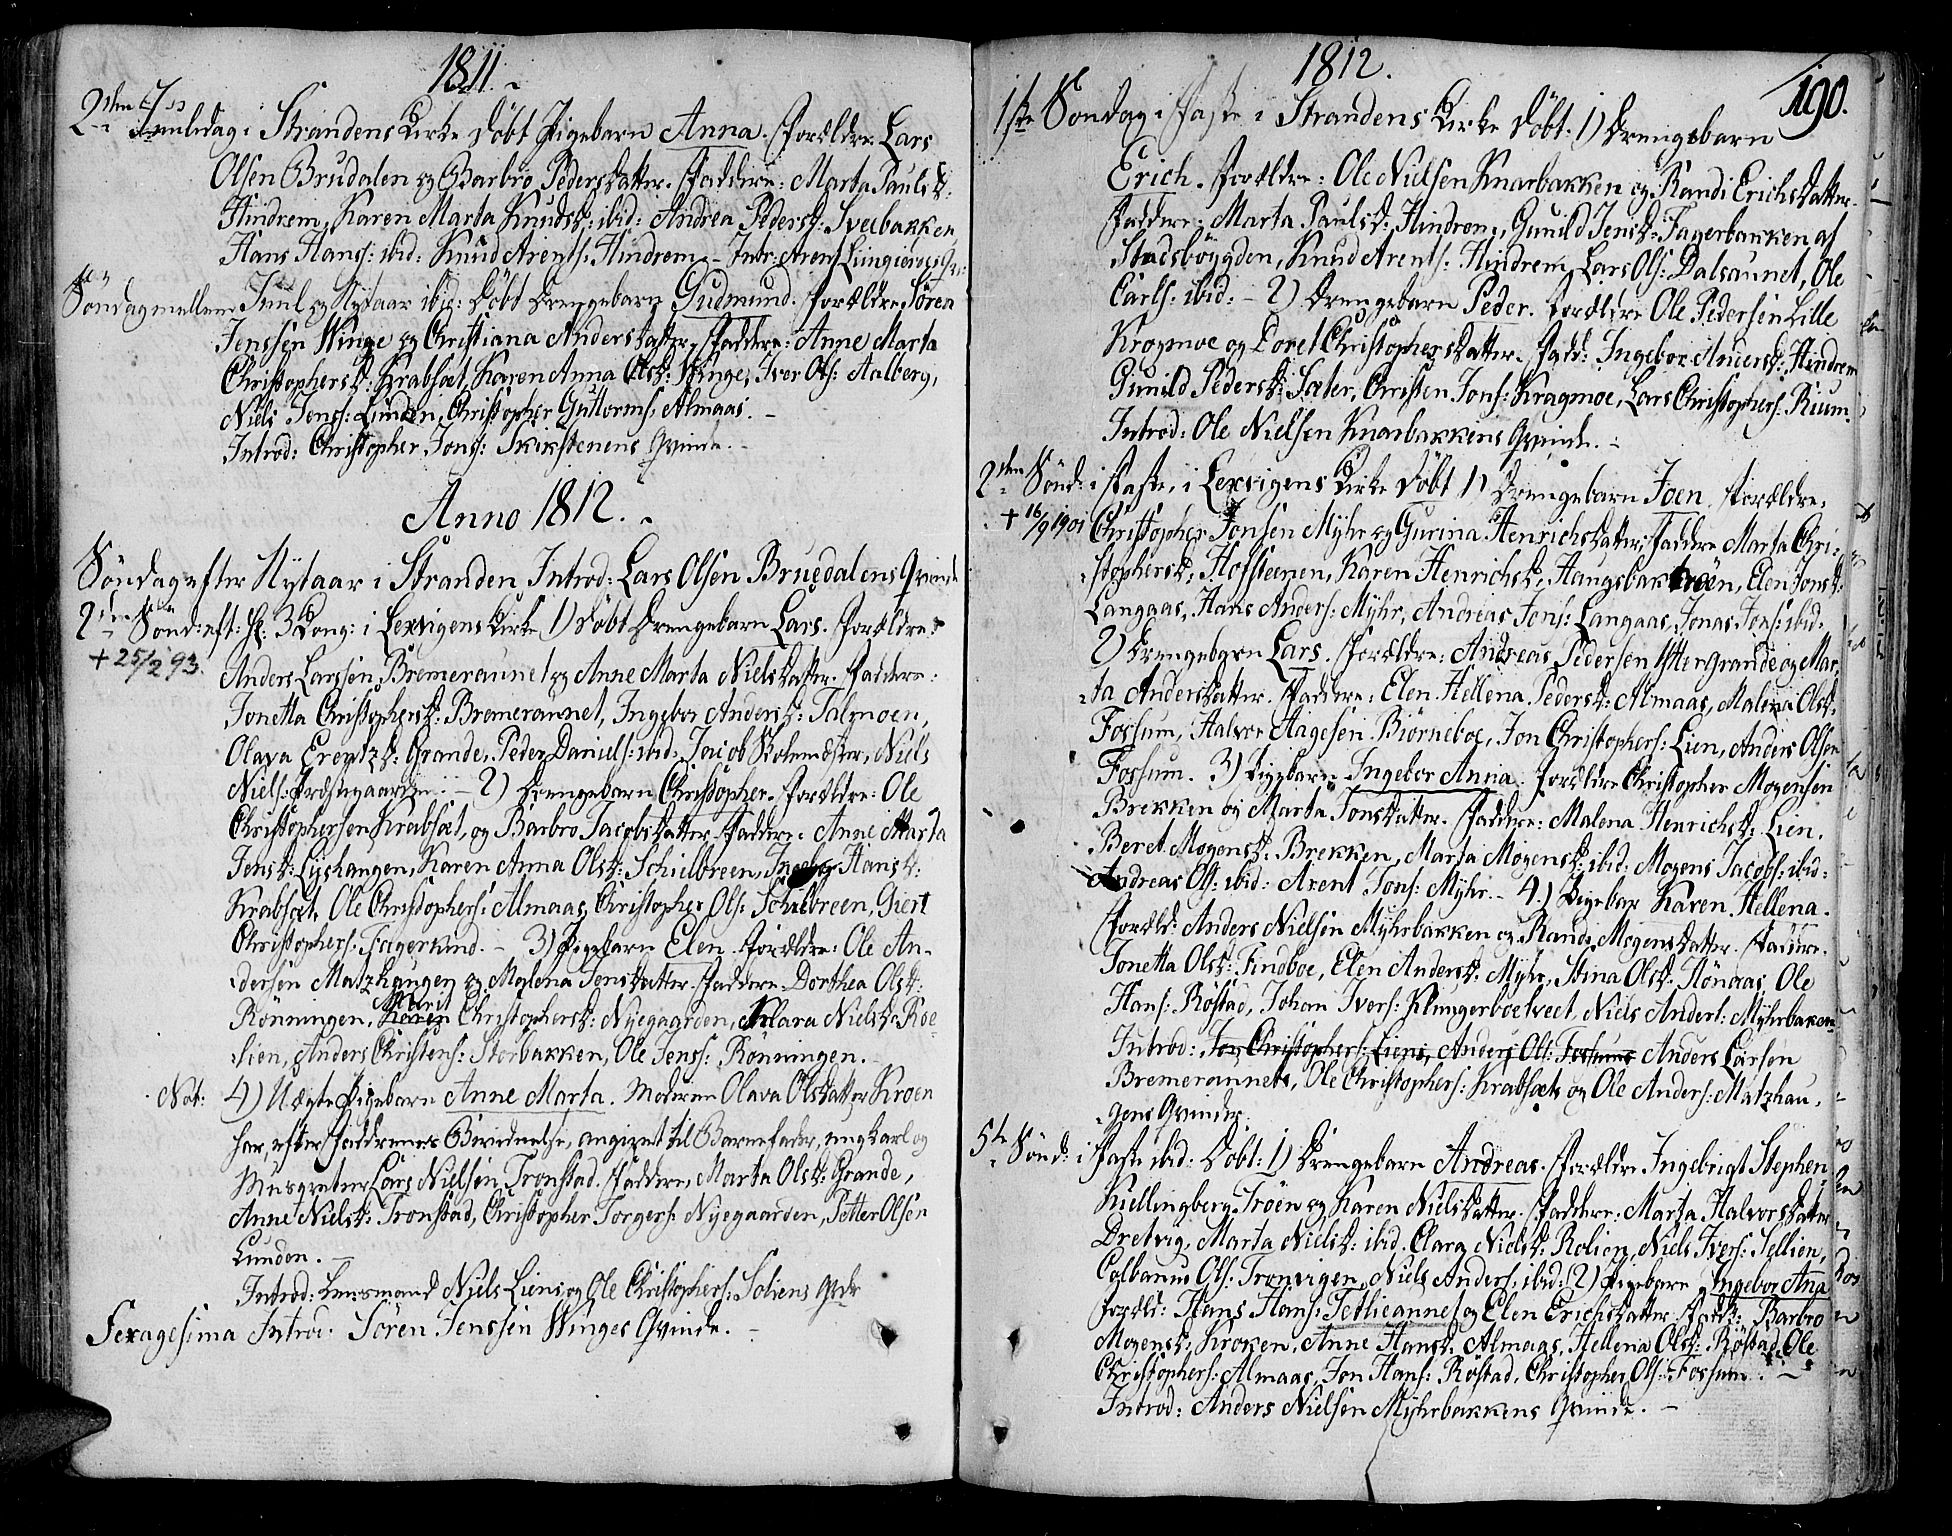 1811.
2den Juuledag i Strandens Kirke Döbt Pigebarn Anna. Forældre Lars
Olsen Brudalen og Barbro Pedersdatter. Faddere: Marta Paulsd:
Hindrem, Karen Marta Knudsd: ibid: Andrea Pedersd: Sveebakken,
Hans Hans: ibid: Knud Arents: Hindrem. Intr: Arent
Söndag mellem Juul og Nytaar ibid: Döbt Drengebarn Gudmund. Forældre Sören
Jenssen Winge og Christiana Andersdatter. Faddere: Anne Marta
Christophersd: Krabsæt, Karen Anna Olsd: Winge, Iver Ols: Aalberg,
Niels Jens: Linden, Christopher Guttorms: Almaas.
Introd: Christopher Jons: Qvinde.
Anno 1812.
Söndag efter Nytaar i Stranden Introd: Lars Olsen Bruedalens Qvinde
2den Sönd: eft: H: 3 Kong: i Lexvigens Kirke 1) Döbt Drengebarn Lars. Forældre:
+ 25/2 93.
Anders Larssen Bremeraunet og Anne Marta Nielsdatter. Faddere:
Jonetta Christophersd: Bremeraunet, Ingebor Andersd: Talmoen,
Olava Grande, Peder Daniels: ibid: Jacob Skolemester, Niels
Niels: Præstegaarden. 2) Drengebarn Christopher. Forældre: Ole
Christophersen Krabsæt, og Barbro Jacobsdatter. Faddere: Anne Marta
Jensd: Lyshaugen, Karen Anna Olsd: Schielbreen, Ingebor Hansd:
Krabsæt, Ole Christophers: Almaas, Christopher Ols: Schielbreen, Giert
Christophers: Fagerland. 3) Pigebarn Elen. Forældre: Ole An-
dersen Matzhaugen og Malena Jensdatter. Faddere: Dorthea Olsd:
Rönningen, Marit Christophersd: Nyegaarden, Klara Nielsd: Roe-
lien, Anders Christens: Storbakken, Ole Jens: Rönningen.
Not: 4) Uægte Pigebarn Anne Marta. Moderen Olava Olsdatter Kroen
har, efter Faddernes Beviidnelse, angivet til Barnefader, ung Karl og
Musqueteer Lars Nielsen Tronstad. Faddere, Marta Olsd: Grande,
Anne Nielsd: Tronstad, Christopher Torgers: Nyegaarden, Petter Olsen
Lunden.
Introd: Lensmand Niels Liens og Ole Christophers: Soliens Qvdr
Sexagesima Introd: Sören Jenssen Winges Qvinde.
1812.
190.
1ste Söndag i Faste i Strandens Kirke Döbt. 1) Drengebarn
Erich. Forældre: Ole Nielsen Knarbakken og Randi Erichsdatter.
Faddere: Marta Paulsd: Hindrem, Gunild Jensd: Fagerbakken af
Stadsböygden, Knud Arents: Hindrem, Lars Ols: Dalsaunet, Ole
Carls: ibid: 2) Drengebarn Peder. Forældre Ole Pedersen Lille
Kragmoe og Doret Christophersdatter. Fadd: Ingebor Hindrem
Gunild Pedersd: Sæter, Christen Jons: Kragmoe, Lars Christophers: Rium.
Introd: Ole Nielsen Knarbakkens Qvinde.
2den Sönd: i Faste, i Lexvigens Kirke Döbt 1) Drengebarn Joen. Forældre:
+ 16/9 1901 Christopher Jonsen Myhr og Gurina Henrichsdatter, Faddere Marta Chri-
stophersd: Hofsteenen, Karen Henrichsd: Haugsbakkröen, Elen Jonsd:
Langaas, Hans Anders: Myhr, Andreas Jons: Langaas, Jonas Jons: ibid:
2) Drengebarn Lars. Forældre: Andreas Pedersen Yttergrande og Mar-
ta Andersdatter. Faddere: Elen Hellena Pedersd: Almaas, Malena Olsd:
Fossum, Halvor Aagesen Biörneboe, Jon Christophers: Lien, Anders Olsen
Fossum. 3) Pigebarn Ingebor Anna. Forældre Christopher Mogensen
Brekken og Marta Jonsdatter. Faddere: Malena Henrichsd: Lien,
Beret Mogensd: Brekken, Marta Mogensd: ibid: Mogens Jacobs: ibid:
Andreas Ols: ibid: Arent Jons: Myhr. 4) Pigebar Karen Hellena.
Foræld: Anders Nielsen Myhrbakken og Randi Mogensdatter. Faddere:
Jonetta Olsd: Findboe, Elen Andersd: Myhr, Stina Olsd: Hönaas, Ole
Hans: Röstad, Johan Ivers: Klungerboetvect, Niels Anders: Myhrbaken
Introd: Jon Christophers: Liens, Anders Ols: Fossums Anders Larsen
Bremeraunets, Ole Christophers: Krabsæts og Ole Anders: Matzhau-
gens Qvinder.
5te Sönd: i Faste ibid: Döbt: 1) Drengebarn Andreas. Forældre Ingebrigt Stephen:
Kiellingberg Tröen og Karen Nielsdatter. Faddere: Marta Halvorsdatter
Dretvig, Marta Nielsd: ibid: Clara Nielsd: Rolien, Niels Ivers: Sellien,
Colbanus Ols: Tronvigen, Niels Anders: ibid: 2) Pigebarn Ingebor Ana
Foræld: Hans Hans: Tetlieaunet og Elen Erichsdatter. Fadd: Barbro
Mogensd: Kroken, Anne Hansd: Almaas, Hellena Olsd: Röstad, Ole
Christophers: Almaas, Jon Hans: Röstad, Christopher Ols: Fossum.
Introd: Anders Nielsen Myhrbakkens Qvinde.